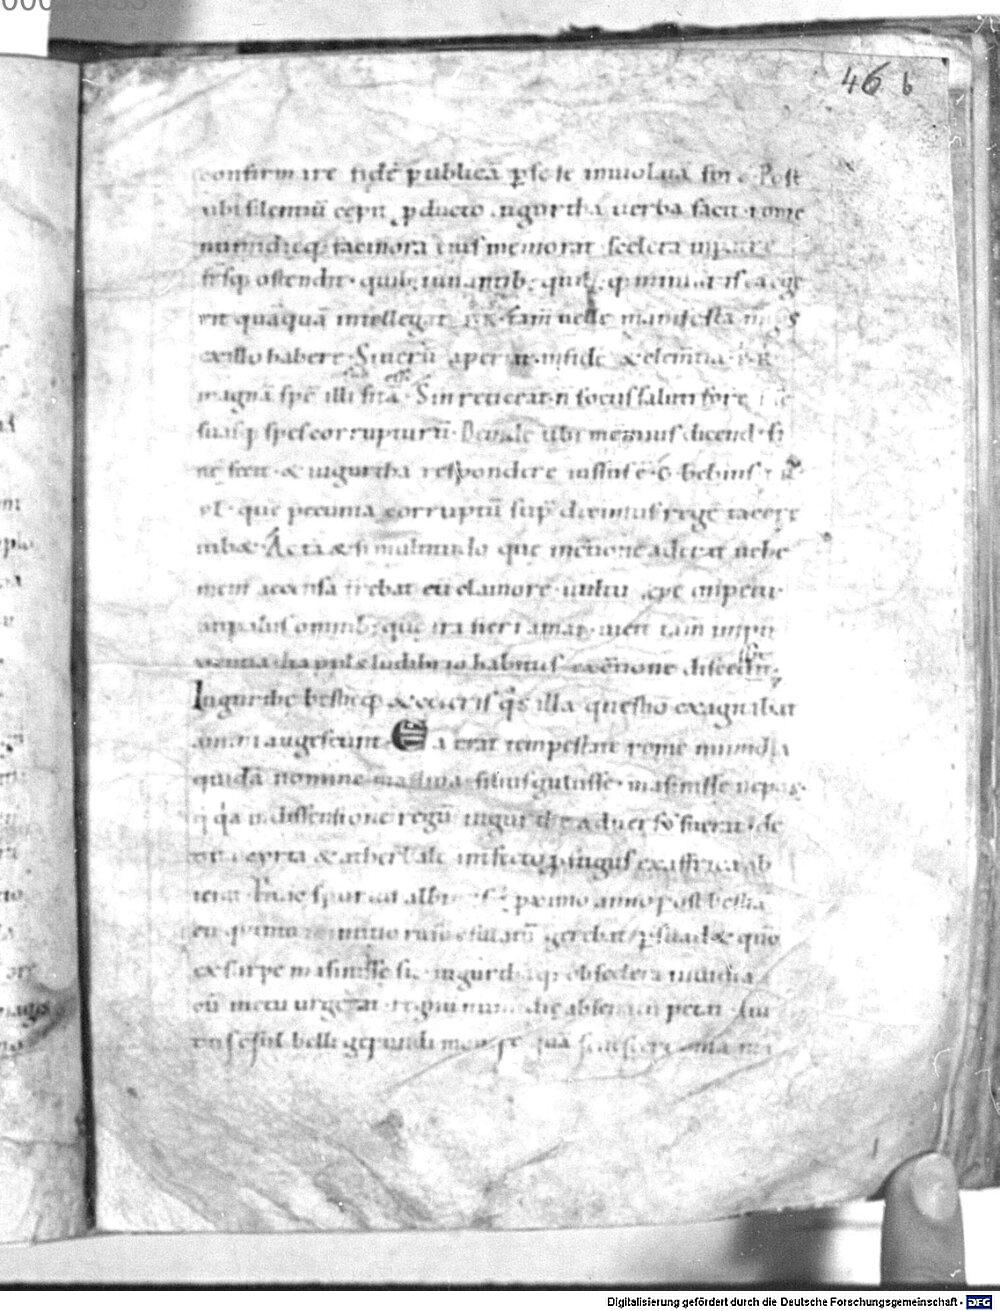 46 b
confirmare fidē publicā p se se inuiolatā fore. Post
ubi silentiū cepit pducto iugurtha uerba facit rome
numidieq; facinora eius memorat scelera in patrē
frs̄q; ostendit. quib; iuuantib; quib;q; ministris ea ege
rit quāquā intellegat tam̄ uelle manifesta magis
ex illo habere. Si uerū aperiat in fide & clem̄tia
magnā spē illi sitā. Sin reticeat n̄ sociis saluti fore
suasq; spes corrupturū. Deinde ubi memmius dicendi fi
nē fecit & iugurtha respondere iussus ē. bebius
pl quē pecunia corruptū sup̄ diximus regē tacere
iub&. Ac tam&si multitudo que in c̄tione aderat uehe
ment accensa trebat eū clamore uultu sepe impetu
atq; aliis omnib; que ira fieri amat uicit tam̄ impu
dentia. Ita pp̄ls ludibrio habitus ex c̄tione discedit
Iugurthe bestieq; & ceteris q̄s illa questio exagitabat
animi augescunt. Ea erat tempestate rome numida
quidā nomine massiua filius gulusse masinisse nepos
q q̄a in dissensione regū iugurthe aduersus fuerat de
dita cyrta & adherbale int̄fecto p̄fugus ex affrica ab
ierat. Huic spurius albin' q p̄ximo anno post bestiā
cū quinto minutio rufo c̄sulatū gerebat p̄suad& quo
ex stirpe masinisse sit iugurthāq; ob scelera inuidia
cū metu urgeat regnū numidię ab senatu petat. Aui
dus c̄sul belli gerundi mouere quā senescere omnia ma
Digitalisierung gefördert durch die Deutsche Forschungsgemeinschaft - DFG